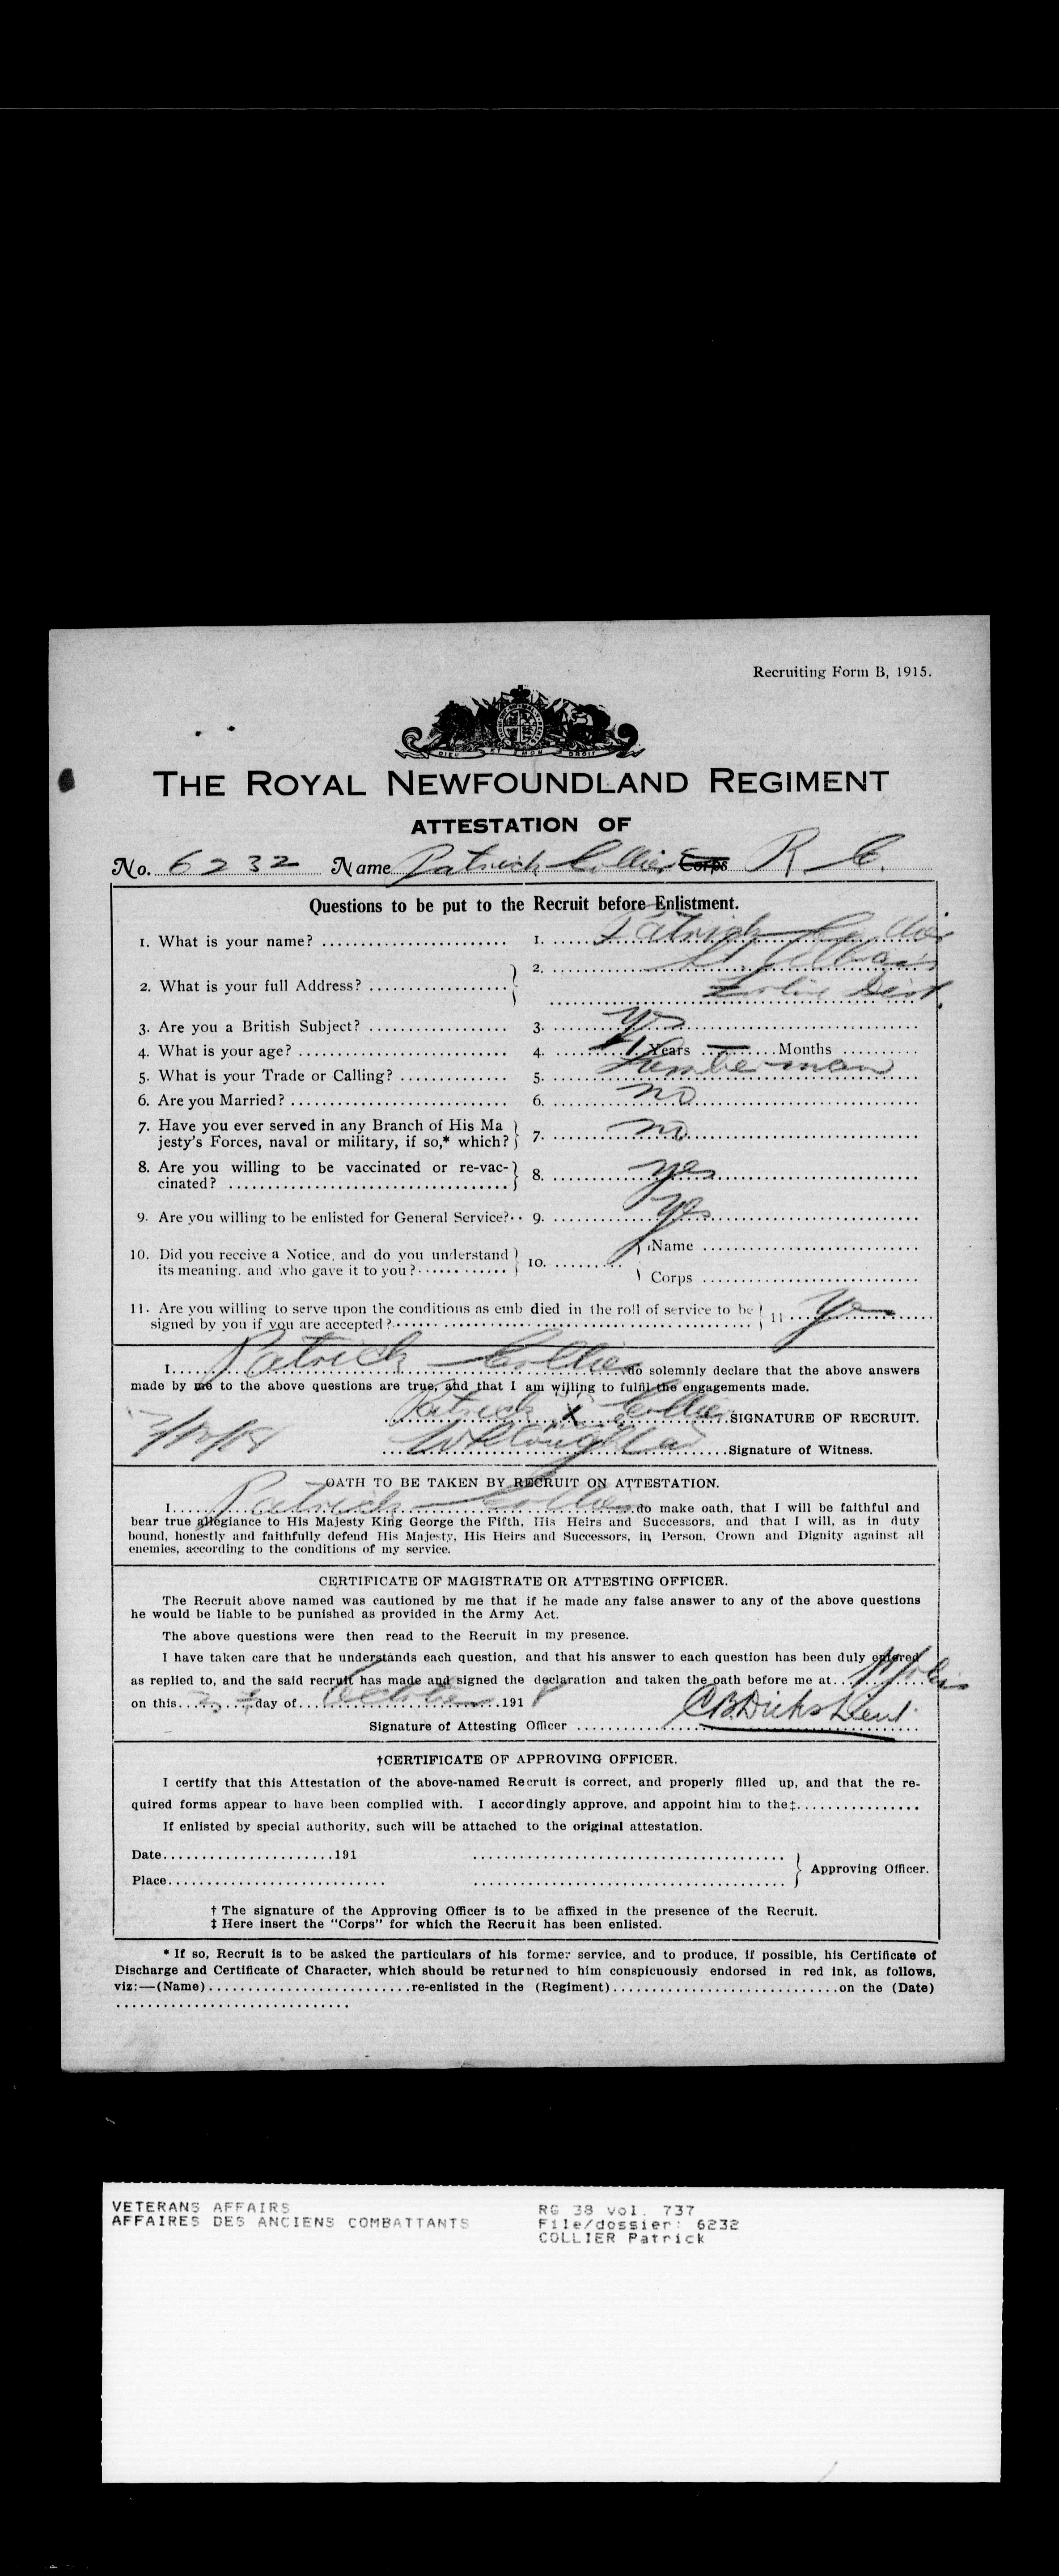 Recruiting Form B, 1915.
DIEU ET MON DROIT
THE ROYAL NEWFOUNDLAND REGIMENT
ATTESTATION OF
No. 6232 Name Patrick Collier Corps R C.
Questions to be put to the Recruit before Enlistment.
1. What is your name? ........................ 1. ...... Patrick Collier
2. What is your full Address? .................. 2. ...... St. Albans
3. Are you a British Subject? .................. 3. ...... yes
4. What is your age? ........................... 4. ...... Years — Months ..........
5. What is your Trade or Calling? .............. 5. ...... Lumberman
6. Are you Married? ............................ 6. ...... no
7. Have you ever served in any Branch of His Ma
jesty's Forces, naval or military, if so,* which? 7. ...... no
8. Are you willing to be vaccinated or re-vac-
cinated? .................................... 8. ...... yes
9. Are you willing to be enlisted for General Service?.. 9. ...... yes
10. Did you receive a Notice, and do you understand
its meaning, and who gave it to you? ............ 10. ......... Name ............
Corps ............
11. Are you willing to serve upon the conditions as emb died in the roll of service to be
signed by you if you are accepted? ............ 11 .... yes
I .... Patrick Collier .... do solemnly declare that the above answers
made by me to the above questions are true, and that I am willing to fulfil the engagements made.
Patrick X Collier SIGNATURE OF RECRUIT.
Signature of Witness.
OATH TO BE TAKEN BY RECRUIT ON ATTESTATION.
I .... Patrick Collier .... do make oath, that I will be faithful and
bear true allegiance to His Majesty King George the Fifth, His Heirs and Successors, and that I will, as in duty
bound, honestly and faithfully defend His Majesty, His Heirs and Successors, in Person, Crown and Dignity against all
enemies, according to the conditions of my service.
CERTIFICATE OF MAGISTRATE OR ATTESTING OFFICER.
The Recruit above named was cautioned by me that if he made any false answer to any of the above questions
he would be liable to be punished as provided in the Army Act.
The above questions were then read to the Recruit in my presence.
I have taken care that he understands each question, and that his answer to each question has been duly entered
as replied to, and the said recruit has made and signed the declaration and taken the oath before me at .. St Johns
on this .......... day of ... October .... 191 8
Signature of Attesting Officer .......... C B Dicks Lieut.
†CERTIFICATE OF APPROVING OFFICER.
I certify that this Attestation of the above-named Recruit is correct, and properly filled up, and that the re-
quired forms appear to have been complied with. I accordingly approve, and appoint him to the‡................
If enlisted by special authority, such will be attached to the original attestation.
Date......................191 ........................................
Place............................ ........................................ Approving Officer.
† The signature of the Approving Officer is to be affixed in the presence of the Recruit.
‡ Here insert the "Corps" for which the Recruit has been enlisted.
* If so, Recruit is to be asked the particulars of his former service, and to produce, if possible, his Certificate of
Discharge and Certificate of Character, which should be returned to him conspicuously endorsed in red ink, as follows,
viz:—(Name)..........................re-enlisted in the (Regiment)............................on the (Date)
..............................
VETERANS AFFAIRS RG 38 vol. 737
AFFAIRES DES ANCIENS COMBATTANTS File/dossier: 6232
COLLIER Patrick